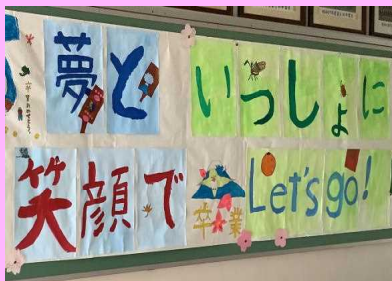 夢といっしょに
笑顔で
卒業
Let's go!